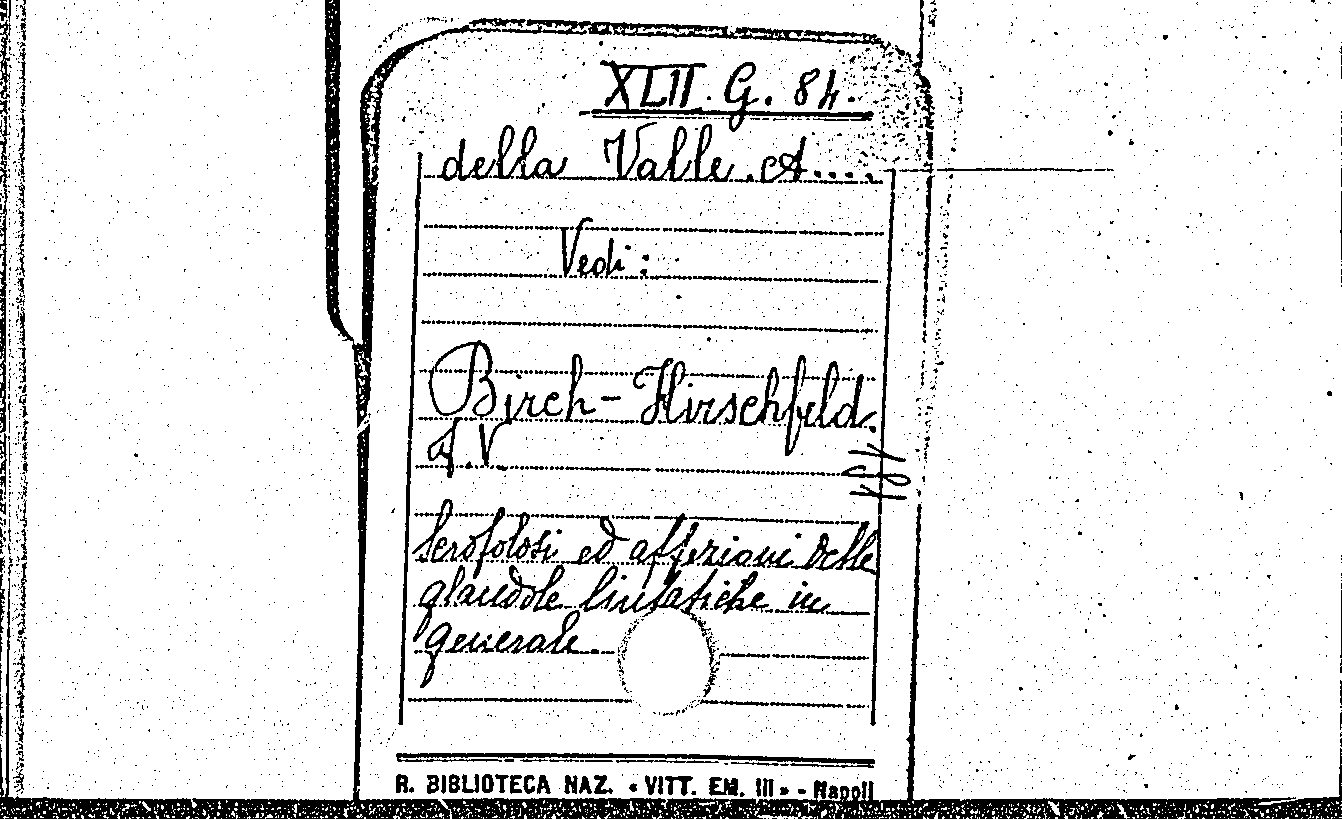 XLII. G. 84.
della Valle. A....
Vedi:
Birch-Hirschfeld.
F. V.
Scrofolosi ed affezioni delle
glandole linfatiche in
generale.
R. BIBLIOTECA NAZ. « VITT. EM. III » - Napoli